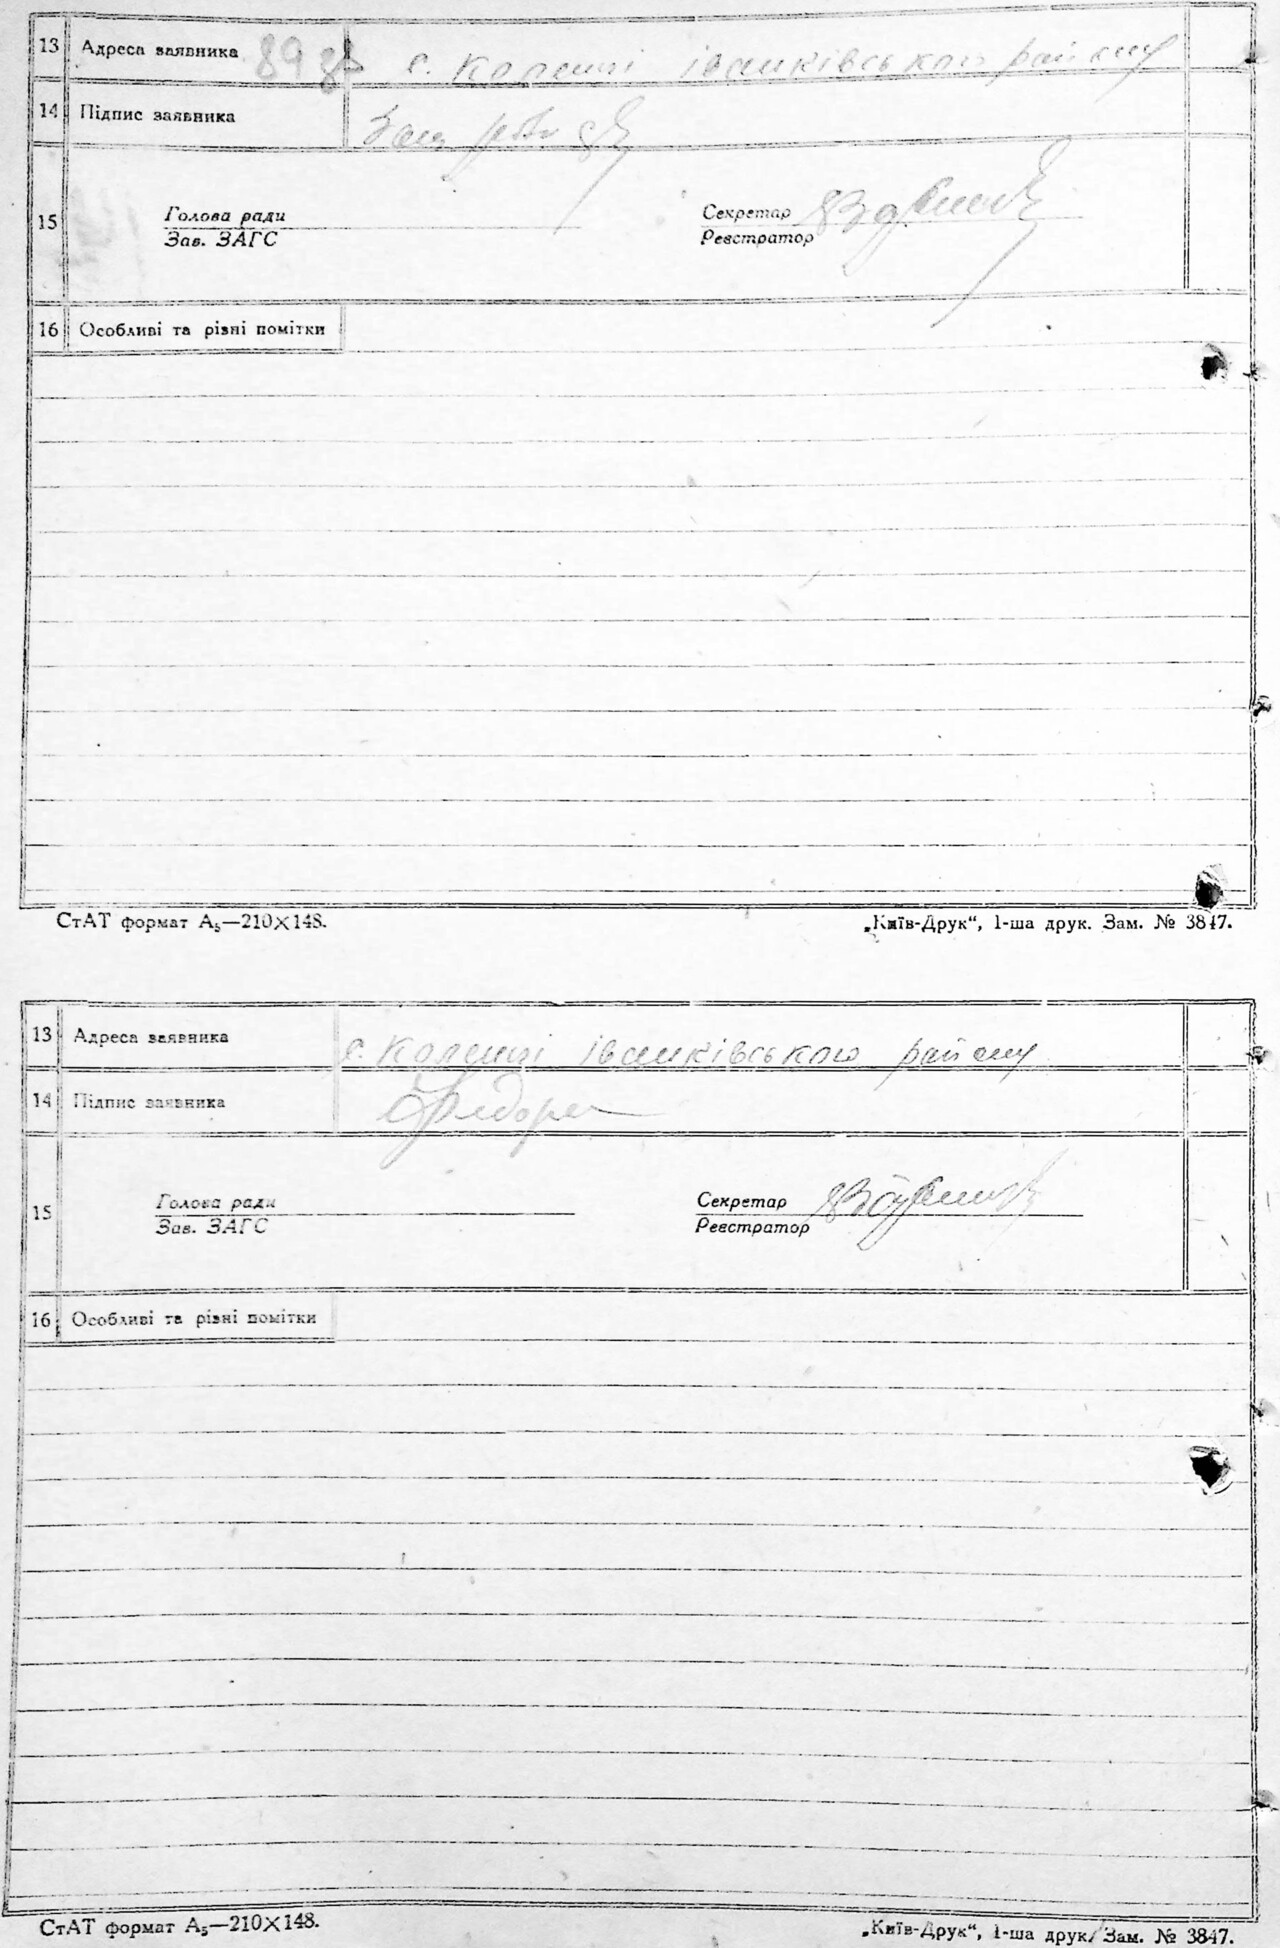 13 Адреса заявника 89 зв с. Коленці іванківського району
14 Підпис заявника
15 Голова ради Секретар
Зав. ЗАГС Реєстратор
16 Особливі та різні помітки
СтАТ формат А₅—210×148. „Київ-Друк“, 1-ша друк. Зам. № 3847.
13 Адреса заявника с. Коленці іванківського району
14 Підпис заявника
15 Голова ради Секретар
Зав. ЗАГС Реєстратор
16 Особливі та різні помітки
СтАТ формат А₅—210×148. „Київ-Друк“, 1-ша друк. Зам. № 3847.